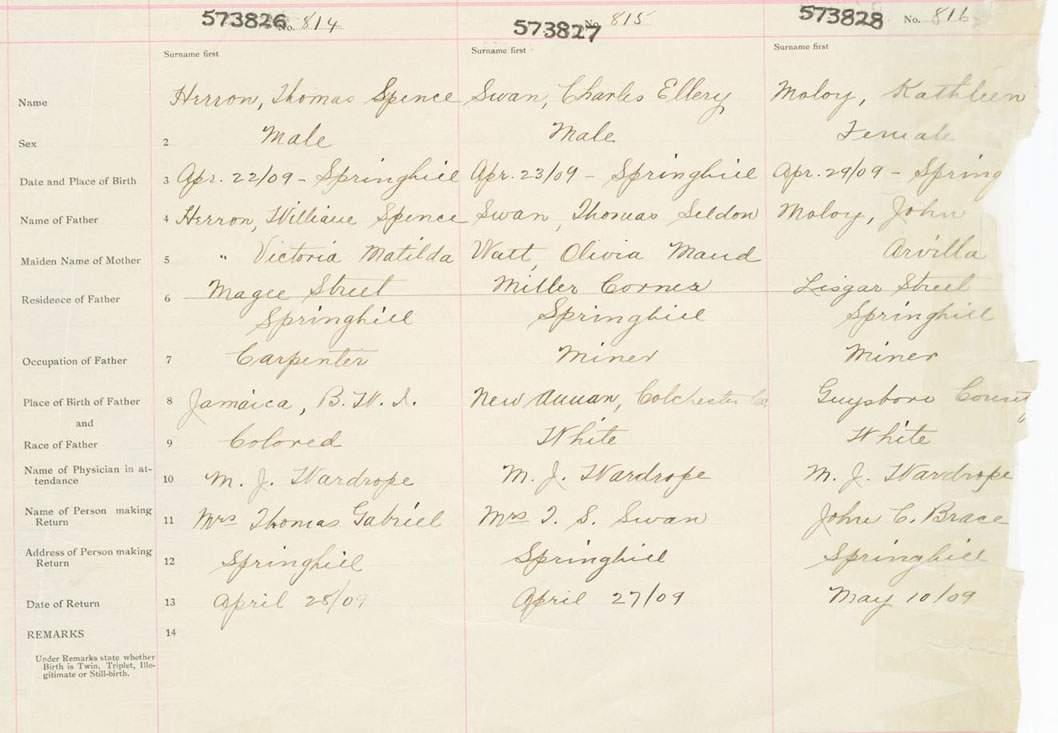 573826 No. 814 573827 No. 815 573828 No. 816
Surname first Surname first Surname first
Name Herron, Thomas Spence Swan, Charles Ellery Moloy, Kathleen
Sex 2 Male Male Female
Date and Place of Birth 3 Apr. 22/09 - Springhill Apr. 23/09 - Springhill Apr. 29/09 - Spring
Name of Father 4 Herron, William Spence Swan, Thomas Seldon Moloy, John
Maiden Name of Mother 5 " Victoria Matilda Watt, Olivia Maud Arvilla
Residence of Father 6 Magee Street Miller Corner Lisgar Street
Springhill Springhill Springhill
Occupation of Father 7 Carpenter Miner Miner
Place of Birth of Father 8 Jamaica, B.W.I. New Annan, Colchester Co. Guysboro County
and
Race of Father 9 Colored White White
Name of Physician in at-
tendance 10 M. J. Wardrope M. J. Wardrope M. J. Wardrope
Name of Person making
Return 11 Mrs Thomas Gabriel Mrs T. S. Swan John C. Brace
Address of Person making
Return 12 Springhill Springhill Springhill
Date of Return 13 April 28/09 April 27/09 May 10/09
REMARKS 14
Under Remarks state whether
Birth is Twin, Triplet, Ille-
gitimate or Still-birth.